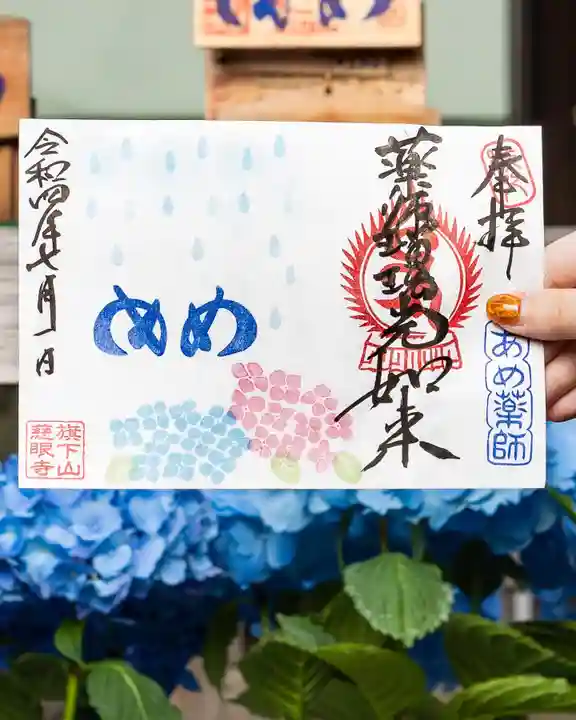 奉拝
薬師瑠璃光如来
あめ薬師
めめ
令和四年七月一日
旗下山
慈眼寺